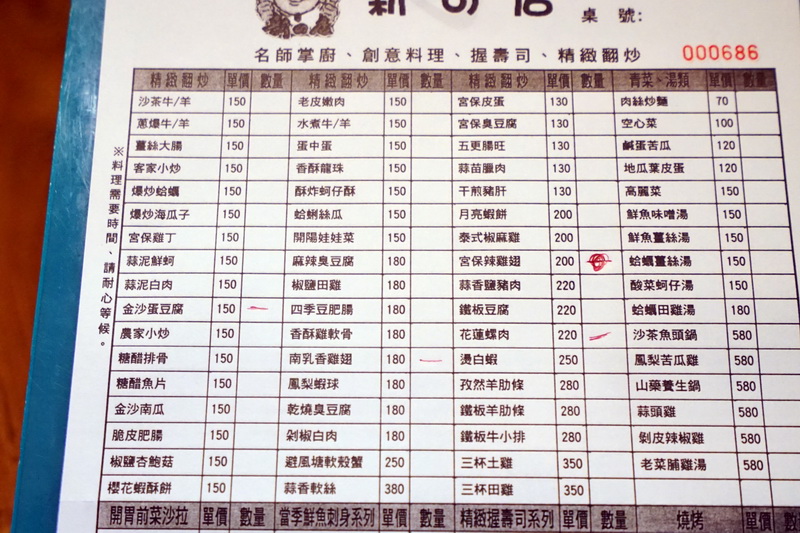 桌 號:
名師掌廚、創意料理、握壽司、精緻翻炒 000686
精緻翻炒 單價 數量 精緻翻炒 單價 數量 精緻翻炒 單價 數量 青菜、湯類 單價 數量
沙茶牛/羊 150 老皮嫩肉 150 宮保皮蛋 130 肉絲炒麵 70
蔥爆牛/羊 150 水煮牛/羊 150 宮保臭豆腐 130 空心菜 100
薑絲大腸 150 蛋中蛋 150 五更腸旺 130 鹹蛋苦瓜 120
客家小炒 150 香酥龍珠 150 蒜苗臘肉 130 地瓜葉皮蛋 120
爆炒蛤蠣 150 酥炸蚵仔酥 150 干煎豬肝 130 高麗菜 150
爆炒海瓜子 150 蛤蜊絲瓜 150 月亮蝦餅 200 鮮魚味噌湯 150
宮保雞丁 150 開陽娃娃菜 150 泰式椒麻雞 200 鮮魚薑絲湯 150
蒜泥鮮蚵 150 麻辣臭豆腐 180 宮保辣雞翅 200 蛤蠣薑絲湯 150
蒜泥白肉 150 椒鹽田雞 180 蒜香鹽豬肉 220 酸菜蚵仔湯 150
金沙蛋豆腐 150 四季豆肥腸 180 鐵板豆腐 220 蛤蠣田雞湯 180
農家小炒 150 香酥雞軟骨 180 花蓮螺肉 220 沙茶魚頭鍋 580
糖醋排骨 150 南乳香雞翅 180 燙白蝦 250 鳳梨苦瓜雞 580
糖醋魚片 150 鳳梨蝦球 180 孜然羊肋條 280 山藥養生鍋 580
金沙南瓜 150 乾燒臭豆腐 180 鐵板羊肋條 280 蒜頭雞 580
脆皮肥腸 150 剁椒白肉 180 鐵板牛小排 280 剝皮辣椒雞 580
椒鹽杏鮑菇 150 避風塘軟殼蟹 250 三杯土雞 350 老菜脯雞湯 580
櫻花蝦酥餅 150 蒜香軟絲 380 三杯田雞 350
開胃前菜沙拉 單價 數量 當季鮮魚刺身系列 單價 數量 精緻握壽司系列 單價 數量 燒烤 單價
※料理需要時間、請耐心等候。